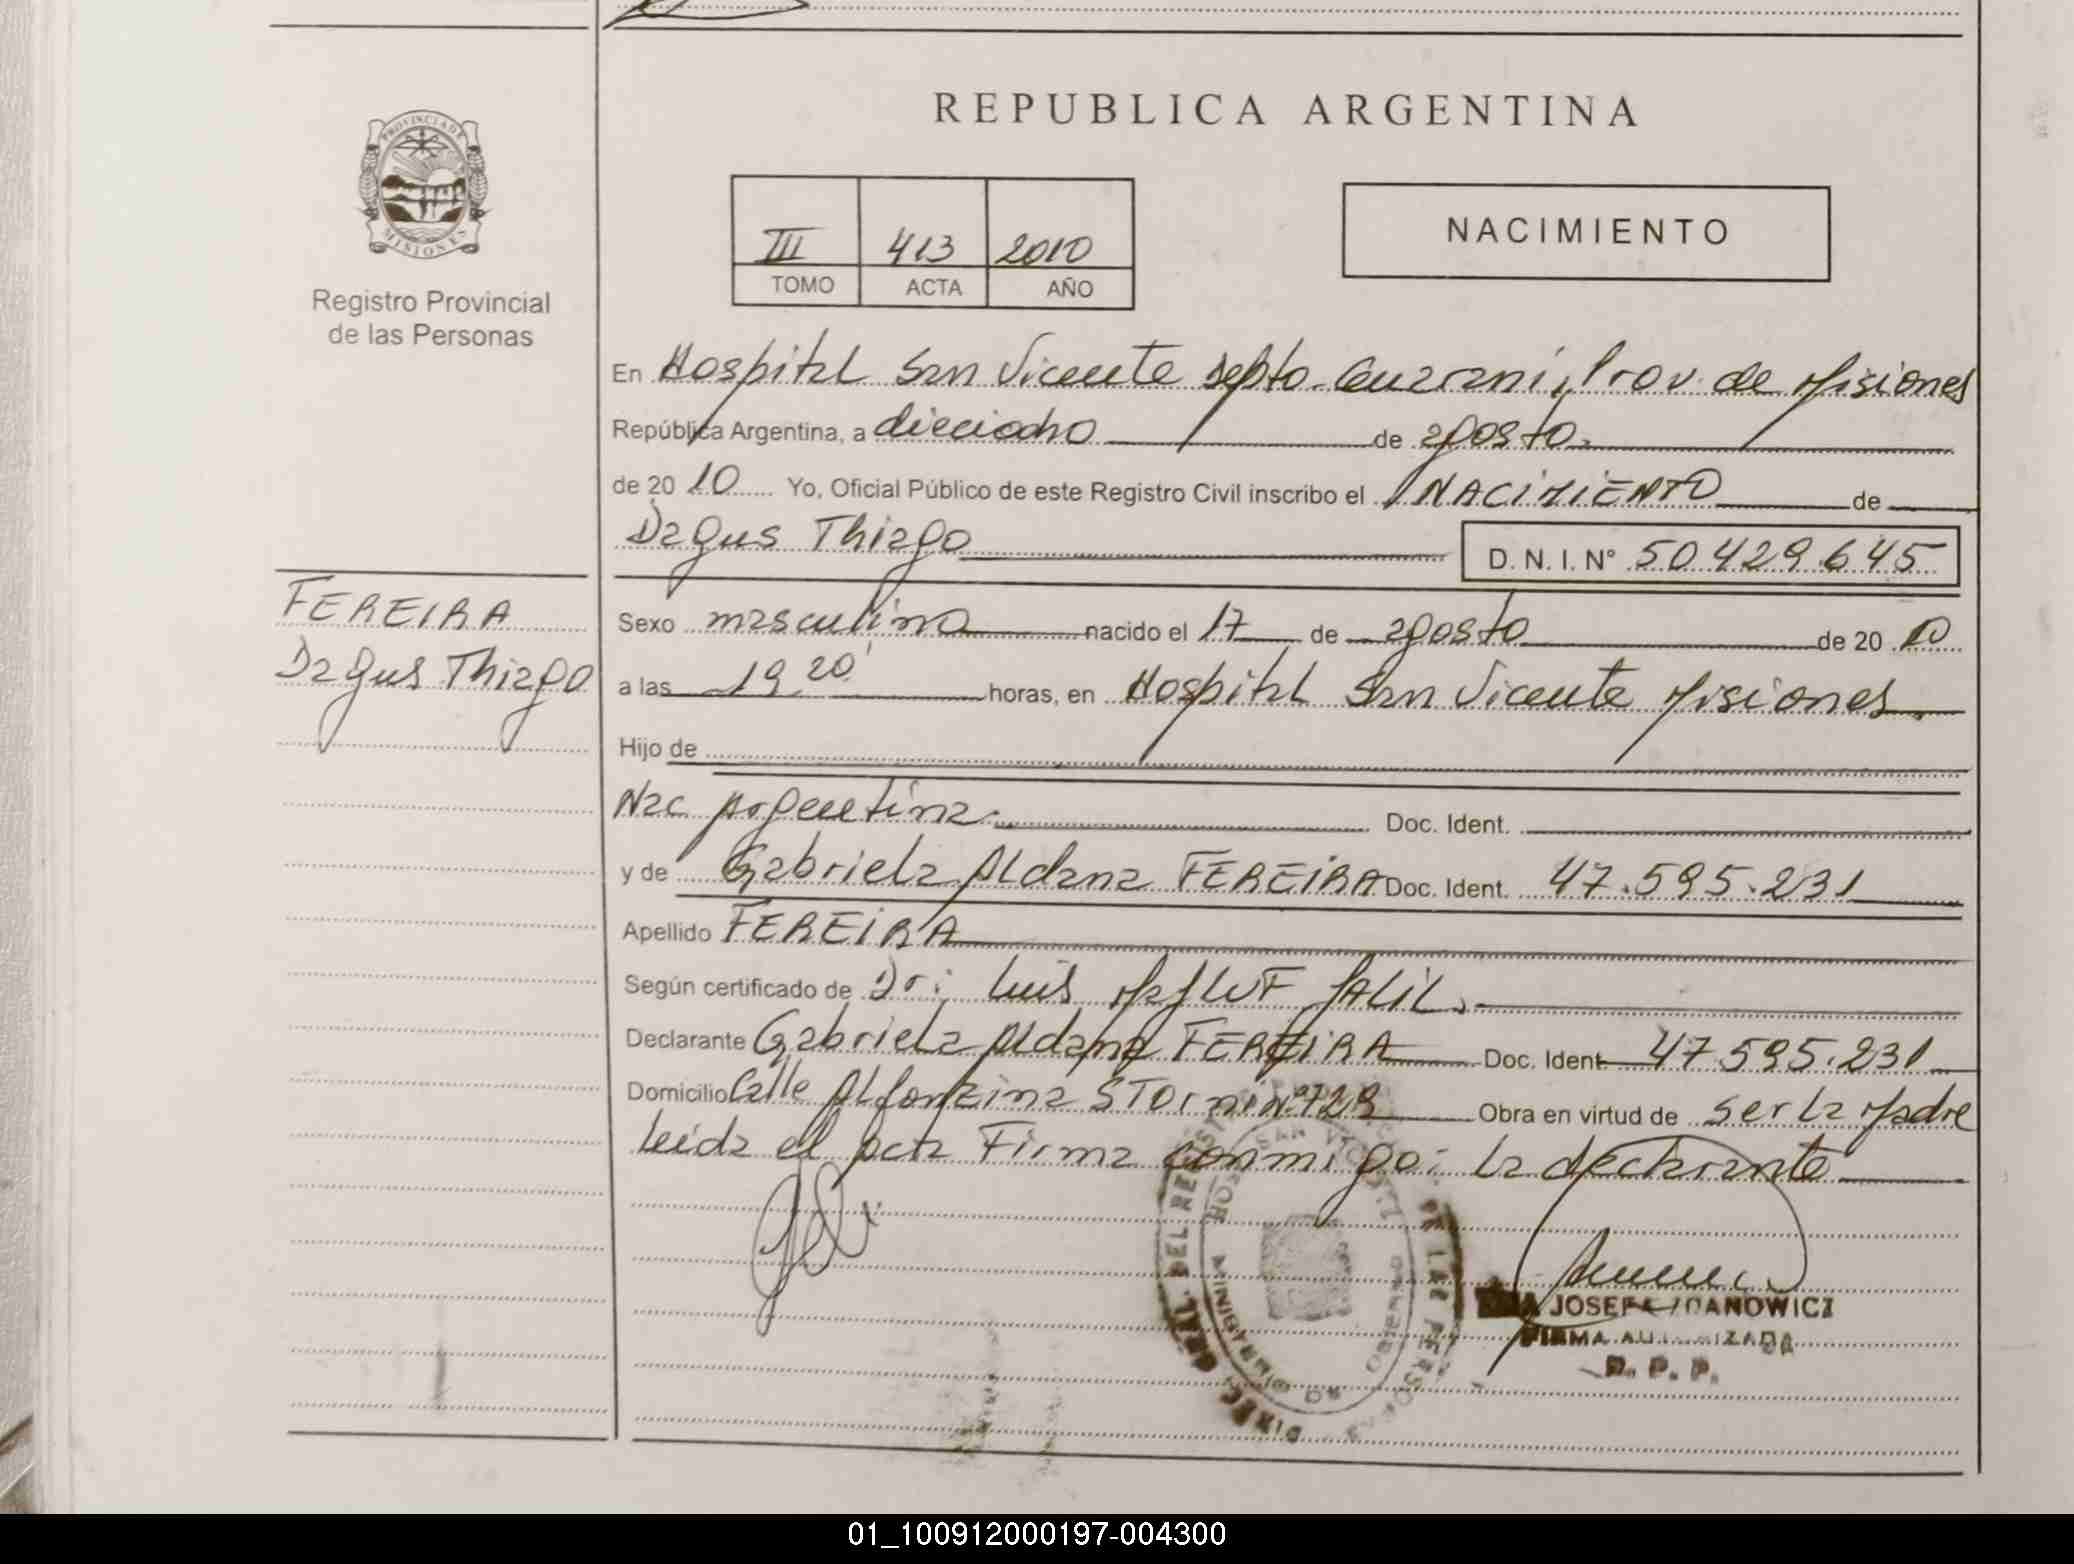 REPUBLICA ARGENTINA
PROVINCIA DE MISIONES
Registro Provincial
de las Personas
III 413 2010
TOMO ACTA AÑO
NACIMIENTO
En Hospital San Vicente Depto. Guarani, Prov. de Misiones
República Argentina, a dieciocho de agosto.
de 20 10 Yo, Oficial Público de este Registro Civil inscribo el NACIMIENTO de
Dagus Thiago D. N. I. N° 50429645
FEREIRA
Dagus Thiago
Sexo masculino nacido el 17 de agosto de 20 10
a las 19,20' horas, en Hospital San Vicente Misiones.
Hijo de
Nac Argentina. Doc. Ident.
y de Gabriela Aldana FEREIRA Doc. Ident. 47.595.231
Apellido FEREIRA
Según certificado de Dr: Luis JALIL.
Declarante Gabriela Aldana FEREIRA Doc. Ident. 47.595.231
Domicilio Calle Alfonzina STorni N° 729 Obra en virtud de ser la Madre
Leida el acta Firma conmigo: La declarante
DIREC. GRAL. DEL REGISTRO DE LAS PERSONAS
HOSP. SAN VICENTE
MINISTERIO DE GOBIERNO
JOSEFA IVANOWICZ
FIRMA AUTORIZADA
R. P. P.
01_100912000197-004300